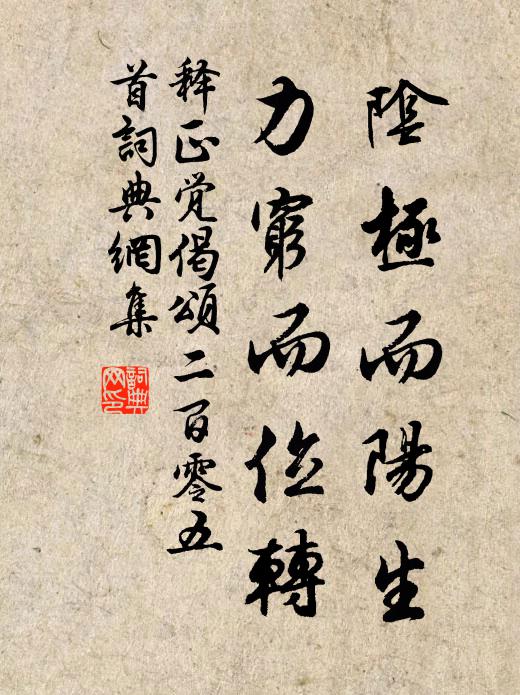 陰極而陽生
力窮而位轉
释正觉偈頌二百零五
首詞典網集
詞典
网印